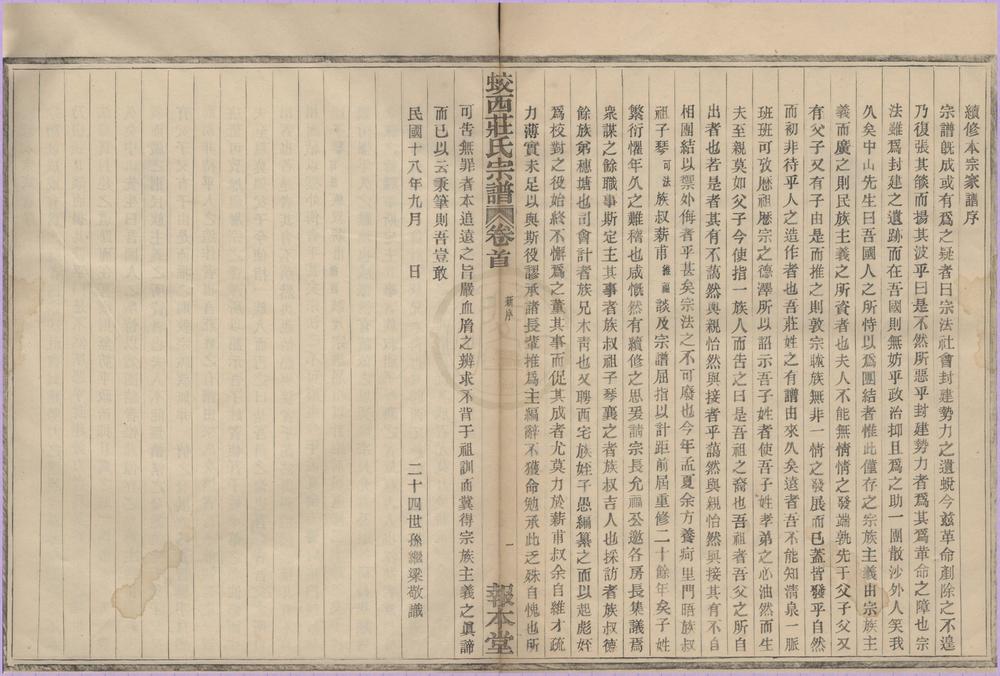 續修本宗家譜序
宗譜既成或有爲之疑者曰宗法社會封建勢力之遺蛻今兹革命剷除之不遑
乃復張其燄而揚其波乎曰是不然所惡乎封建勢力者爲其爲革命之障也宗
法雖爲封建之遺跡而在吾國則無妨乎政治抑且爲之助一團散沙外人笑我
久矣中山先生曰吾國人之所恃以爲團結者惟此僅存之宗族主義由宗族主
義而廣之則民族主義之所資者也夫人不能無情情之發端孰先于父子父又
有父子又有子由是而推之則敦宗睦族無非一情之發展而已蓋皆發乎自然
而初非待乎人之造作者也吾莊姓之有譜由來久矣遠者吾不能知淸泉一脈
班班可攷曆祖曆宗之德澤所以詔示吾子姓者使吾子姓孝弟之心油然而生
夫至親莫如父子今使指一族人而告之曰是吾祖之裔也吾祖者吾父之所自
出者也若是者其有不藹然與親怡然與接者乎藹然與親怡然與接其有不自
相團結以禦外侮者乎甚矣宗法之不可廢也今年孟夏余方養疴里門晤族叔
祖子琴可法族叔薪甫維福談及宗譜屈指以計距前屆重修二十餘年矣子姓
繁衍懼年久之難稽也咸慨然有續修之思爰請宗長允福丞邀各房長集議焉
衆謀之餘職事斯定主其事者族叔祖子琴襄之者族叔吉人也採訪者族叔德
餘族弟穗塘也司會計者族兄木靑也又聘西宅族姪子愚編纂之而以起彪姪
爲校對之役始終不懈爲之董其事而促其成者尤莫力於薪甫叔余自維才疏
力薄實未足以與斯役謬承諸長輩推爲主編辭不獲命勉承此乏殊自愧也所
蛟西莊氏宗譜
卷首
新序
一
報本堂
可告無罪者本追遠之旨嚴血胤之辨求不背于祖訓而冀得宗族主義之眞諦
而已以云秉筆則吾豈敢
民國十八年九月 日
二十四世孫繼梁敬識